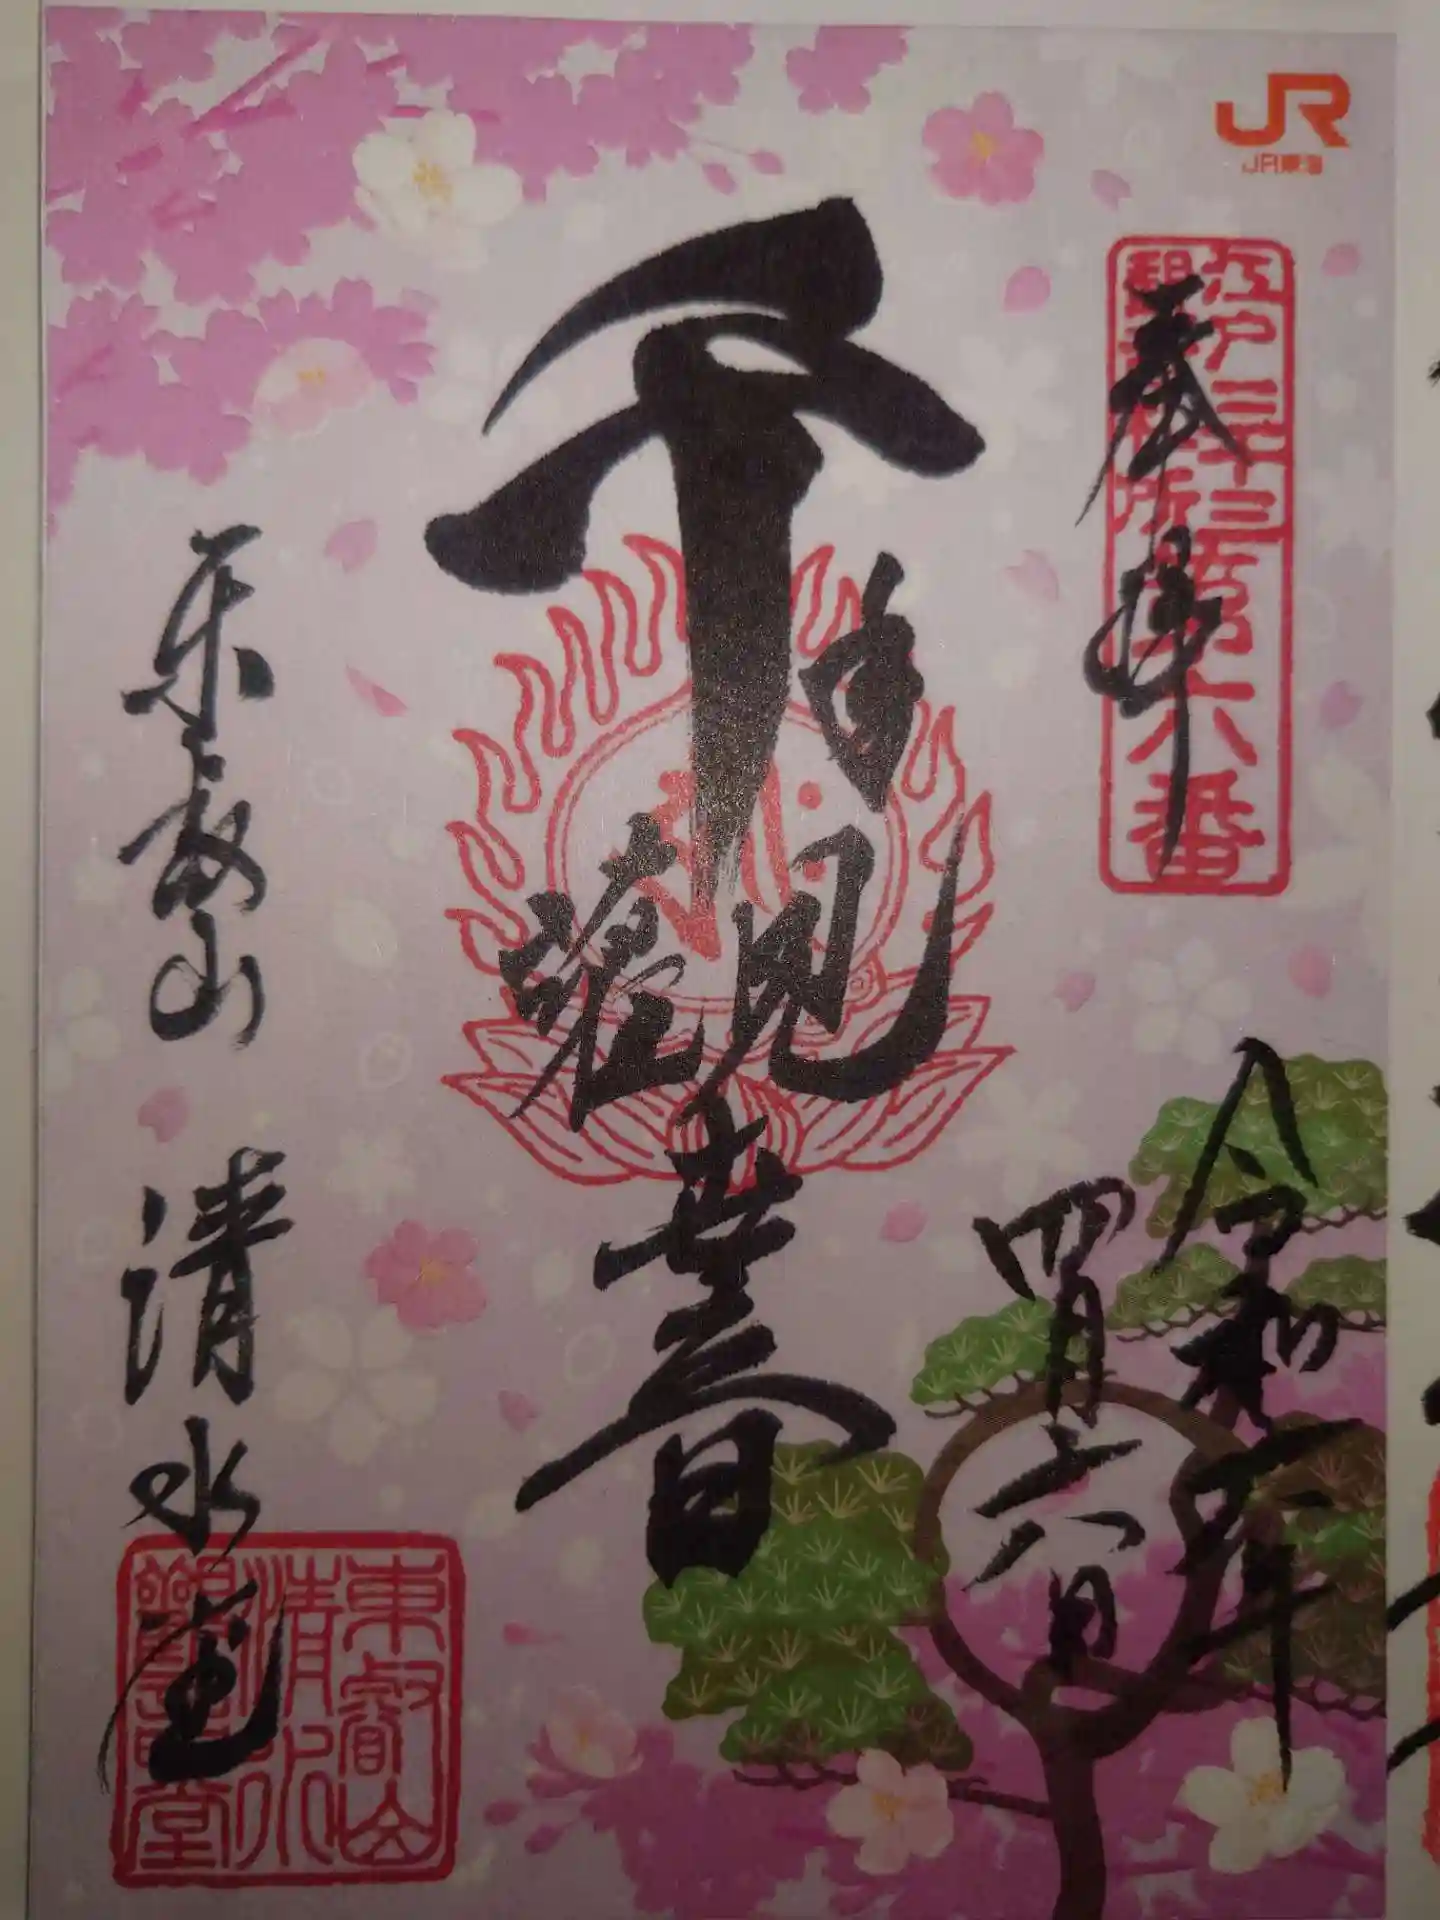 JR
JR東海
江戸三十三
観音札所
第六番
奉拝
千手観世音
令和二年
四月六日
東叡山 清水堂
東叡山
清水
観音堂